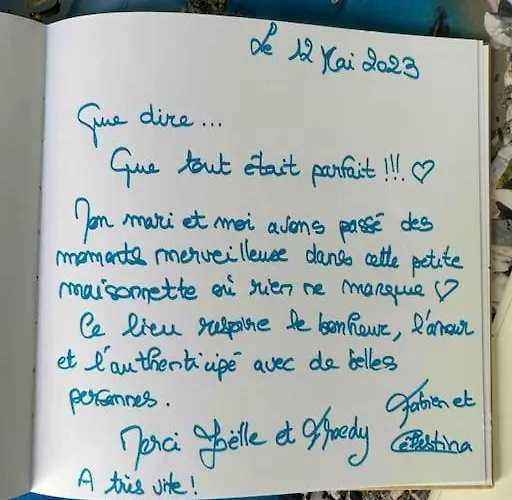 Le 12 Mai 2023
Que dire...
Que tout était parfait !!! ♡
Mon mari et moi avons passé des
moments merveilleuse dans cette petite
maisonnette où rien ne manque ♡
Ce lieu respire le bonheur, l'amour
et l'authenticipé avec de belles
personnes.
Fabien et
Célestina
Merci Joëlle et Freedy
A très vite !